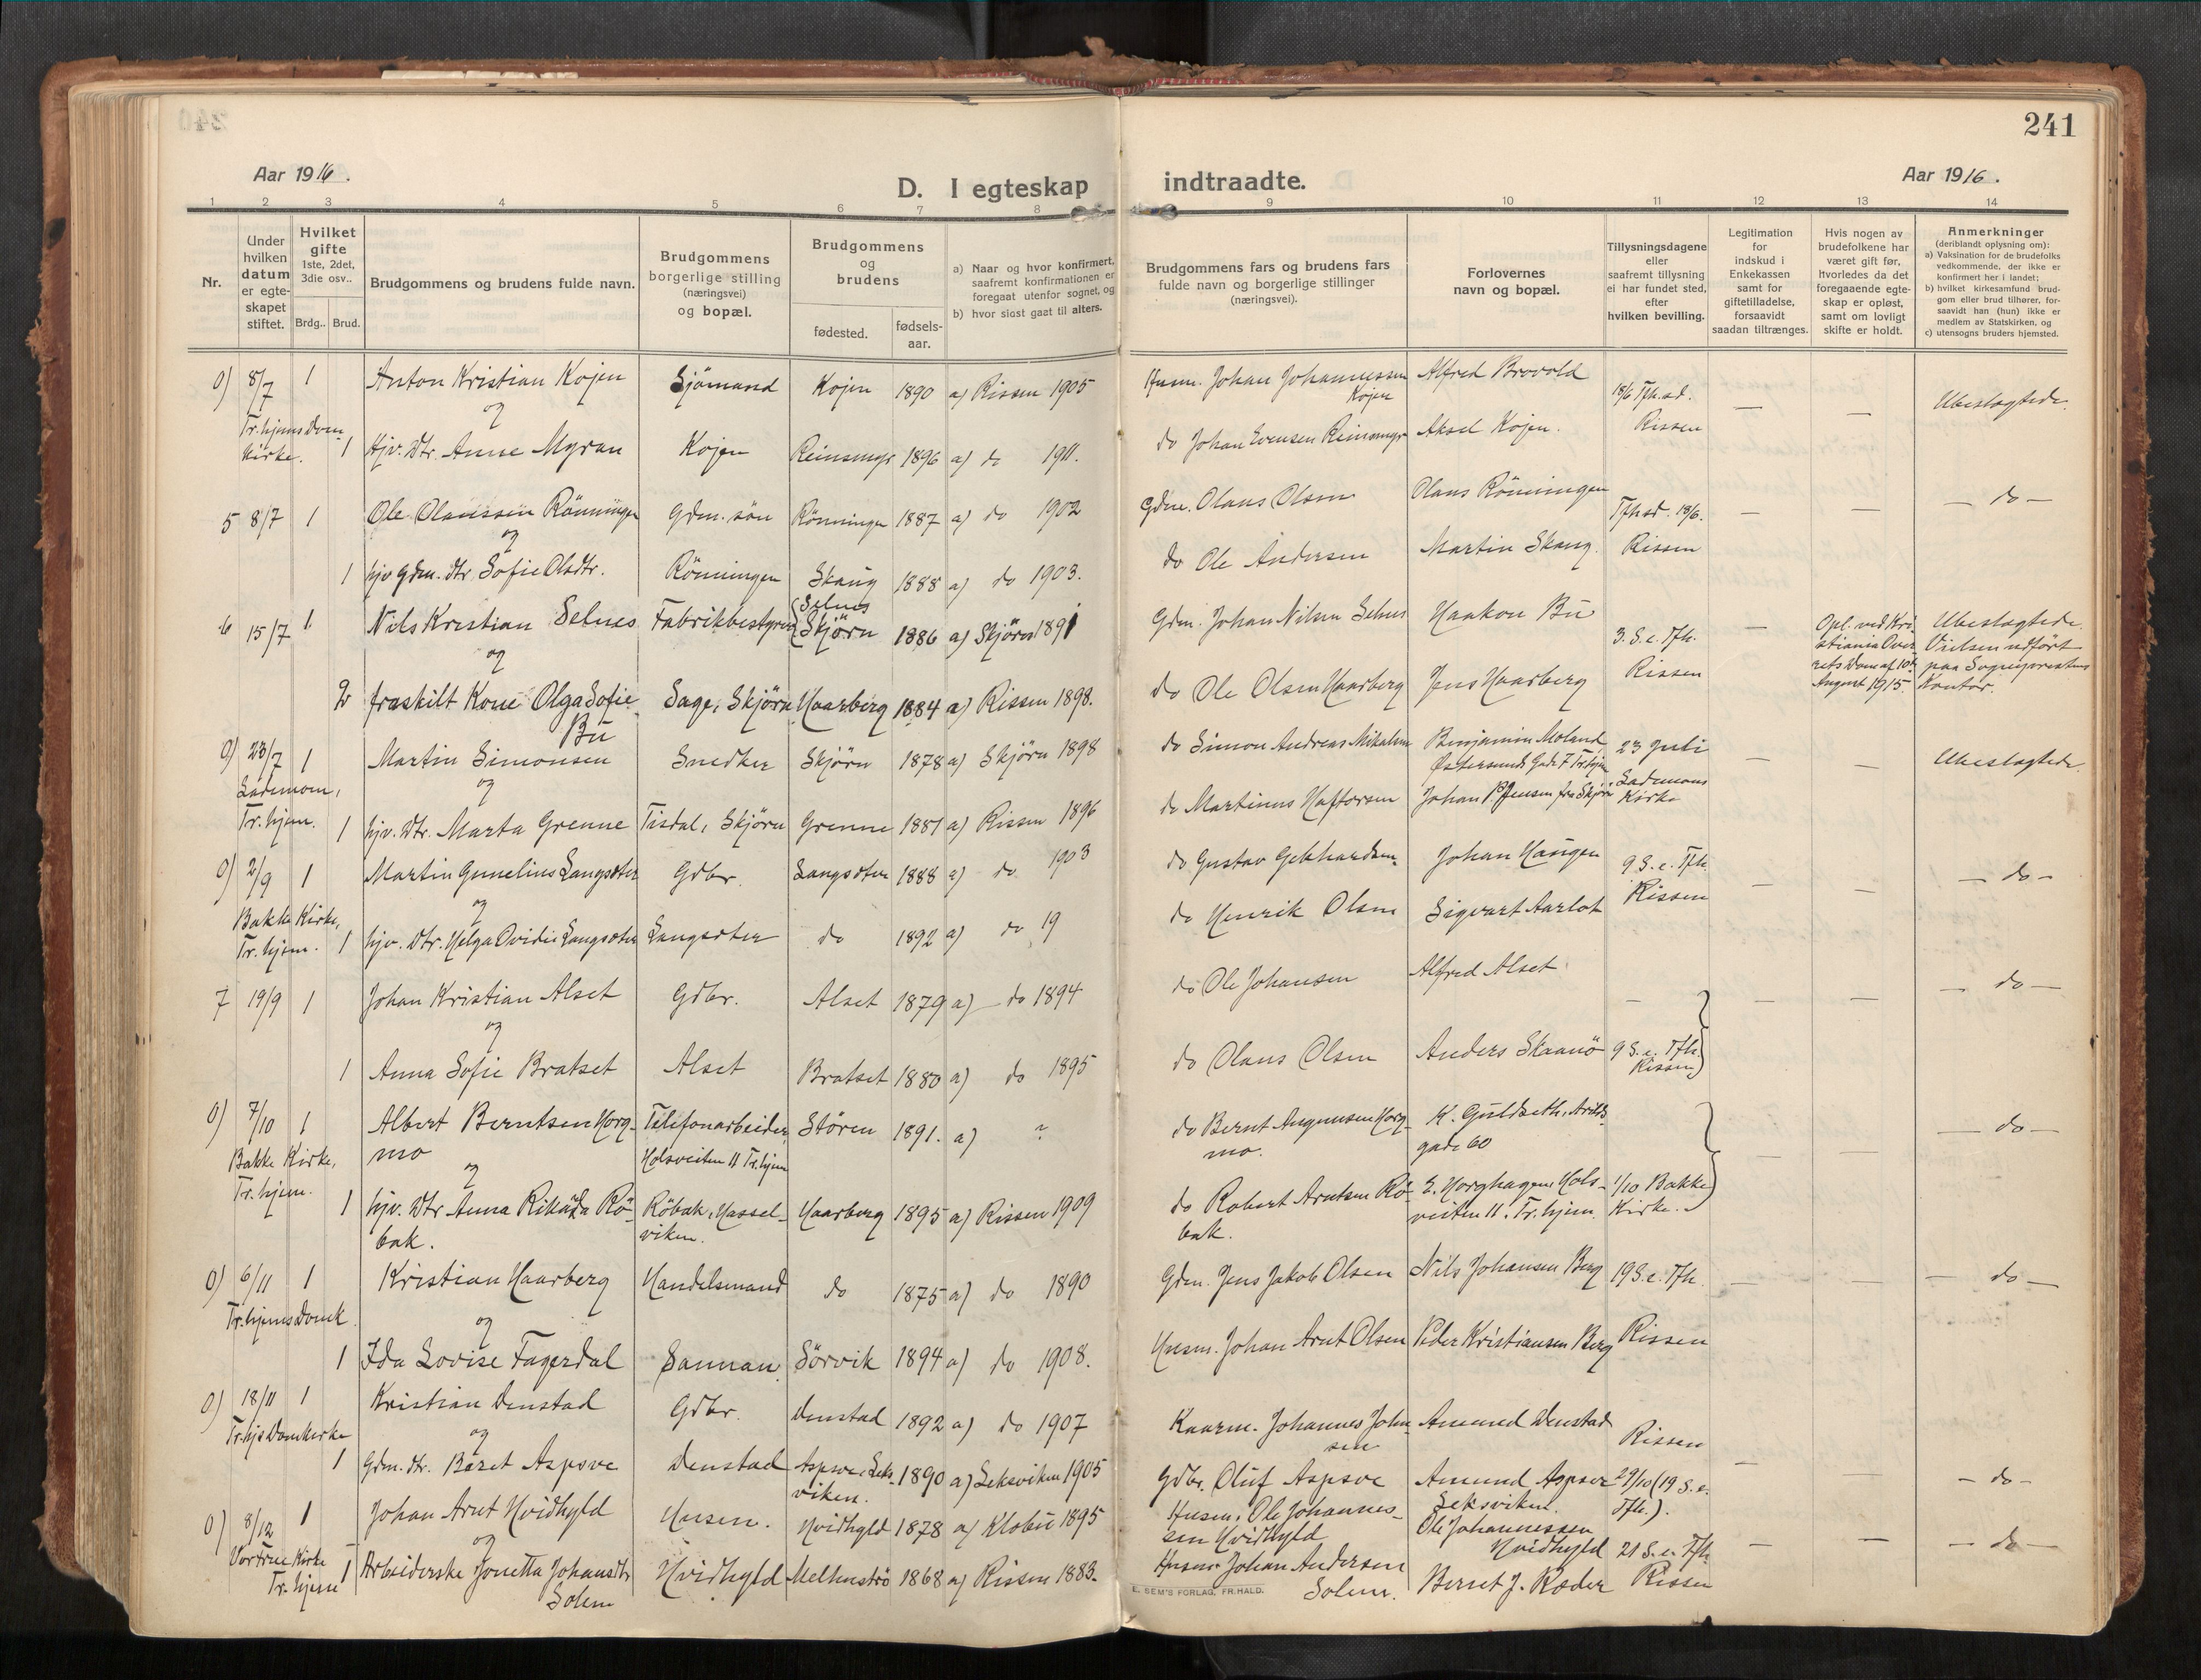 241
Aar 1916.
D. I egteskap indtraadte.
Aar 1916.
1 2 3 4 5 6 7 8 9 10 11 12 13 14
Nr.
Under hvilken datum er egteskapet stiftet.
Hvilket gifte
1ste, 2det, 3die osv..
Brdg.. Brud.
Brudgommens og brudens fulde navn.
Brudgommens borgerlige stilling (næringsvei) og bopæl.
Brudgommens og brudens
fødested.
fødsels-aar.
a) Naar og hvor konfirmert, saafremt konfirmationen er foregaat utenfor sognet, og
b) hvor sidst gaat til alters.
Brudgommens fars og brudens fars fulde navn og borgerlige stillinger (næringsvei).
Forlovernes navn og bopæl.
Tillysningsdagene eller saafremt tillysning ei har fundet sted, efter hvilken bevilling.
Legitimation for indskud i Enkekassen samt for giftetilladelse, forsaavidt saadan tiltrænges.
Hvis nogen av brudefolkene har været gift før, hvorledes da det foregaaende egteskap er opløst, samt om lovligt skifte er holdt.
Anmerkninger
(deriblandt oplysning om):
a) Vaksination for de brudefolks vedkommende, der ikke er konfirmert her i landet;
b) hvilket kirkesamfund brudgom eller brud tilhører, forsaavidt han (hun) ikke er medlem av Statskirken, og
c) utensogns bruders hjemsted.
0) 8/7 1 Anton Kristian Kojen Sjömand Kojen 1890 a) Rissen 1905 Husm. Johan Johannessen Kojen Alfred Brovold 18/6 Tfh.sd. — — Ubeslægtede.
Tr.hjems Domkirke. og
1 Hjv. Dtr. Anne Myran Kojen Reinsmyr 1896 a) do 1911. do Johan Evensen Reinsmyr Aksel Kojen. Rissen
5 8/7 1 Ole Olaussen Rönningen Gdm. sön Rönningen 1887 a) do 1902 Gdm. Olaus Olsen Olaus Rönningen Tfh.sd. 18/6. — — — do —
og
1 hjv Gdm. dtr. Sofie Olsdtr. Rönningen Skaug 1888 a) do 1903. do Ole Andersen Martin Skaug. Rissen
6 15/7 1 Nils Kristian Selnes Fabrikbestyrer Selnes Skjörn 1886 a) Skjörn 1891 Gdm. Johan Nilsen Selnes Haakon Bü 3. S. e. Tfh. — Opl. ved Kristiania Overrets Dom af 10de August 1915. Ubeslægtede. Vielsen udført paa Sogneprestens Kontor.
og
2 fraskilt Kone Olga Sofie Bü Sage, Skjörn Haarberg 1884 a) Rissen 1898. do Ole Olsen Haarberg Jens Haarberg Rissen
0) 23/7 1 Martin Simonsen Snedker Skjörn 1878 a) Skjörn 1898 do Simon Andreas Mikalsen Benjamin Moland, Østersunds Gade 7 Tr.hjem 23 juli — — Ubeslægtede.
Lademoen, Tr.hjem. og
1 hjv. Dtr. Marta Grenne Tisdal, Skjörn Grenne 1881 a) Rissen 1896 do Martinus Haftorsen Johan P. Jensen fra Skjörn Lademoens Kirke
0) 2/9 1 Martin Gemelius Langsæter Gdbr. Langsæter 1888 a) do 1903 do Gustav Gebhardsen Johan Haugen 9 S. e. Tfh. — — — do —
Bakke Kirke, Tr.hjem. og
1 hjv. Dtr. Helga Ovidie Langsæter Langsæter do 1892 a) do 19 do Henrik Olsen Sigvart Aarlot Rissen
7 19/9 1 Johan Kristian Alset Gdbr. Alset 1879 a) — do 1894 do Ole Johansen Alfred Alset — — — — do —
og
1 Anna Sofie Bratset Alset Bratset 1880 a) do 1895 do Olaus Olsen Anders Skaanö 9 S. e. Tfh. Rissen
0) 7/10 1 Albert Berntsen Horgmo Telefonarbeider Holsveiten 11 Tr.hjem Stören 1891. a) ? do Bernt Horgmo. K. Guldseth, gade 60 — — — do —
Bakke Kirke, Tr.hjem. og
1 hjv. Dtr Anna Rikarda Röbak. Röbak, Hasselviken. Haarberg 1895 a) Rissen 1909 do Robert Arntsen Röbak. E. Horghagen Holsveiten 11. Tr.hjem. 1/10 Bakke Kirke.
0) 6/11 1 Kristian Haarberg Handelsmand do 1875 a) do 1890 Gdm. Jens Jakob Olsen Nils Johansen Berg 19 S. e. Tfh. — — — do —
Tr.hjems Domk. og
1 Ida Lovise Fagerdal Sannan. Sörvik 1894 a) do 1908. Husm. Johan Arnt Olsen Peder Kristiansen Berg Rissen
0) 18/11 1 Kristian Denstad Gdbr. Denstad 1892 a) do 1907 Kaarm. Johannes Johnsen Amund Denstad Rissen
Tr.hjs Domkirke og
1 Gdm. dtr. Beret Aspove Denstad Aspove, Leksviken. 1890 a) Leksviken 1905 Gdbr. Oluf Aspove Amund Aspove Leksviken. 29/10 (19 S. e. Tfh.). — — do —
0) 8/12 1 Johan Arnt Hvidhyld Husm. Hvidhyld 1878 a) Klæbu 1895 Husm. Ole Johannessen Hvidhyld Ole Johannessen Hvidhyld 21 S. e. Tfh. — — — do —
Vor Frue Kirke Tr.hjem og
1 Arbeiderske Jonetta Johansdtr Solem Hvidhyld Melhusströ 1868 a) Rissen 1883. Husm. Johan Andersen Solem. Bernt J. Ræder Rissen
E. SEM'S FORLAG, FR.HALD.